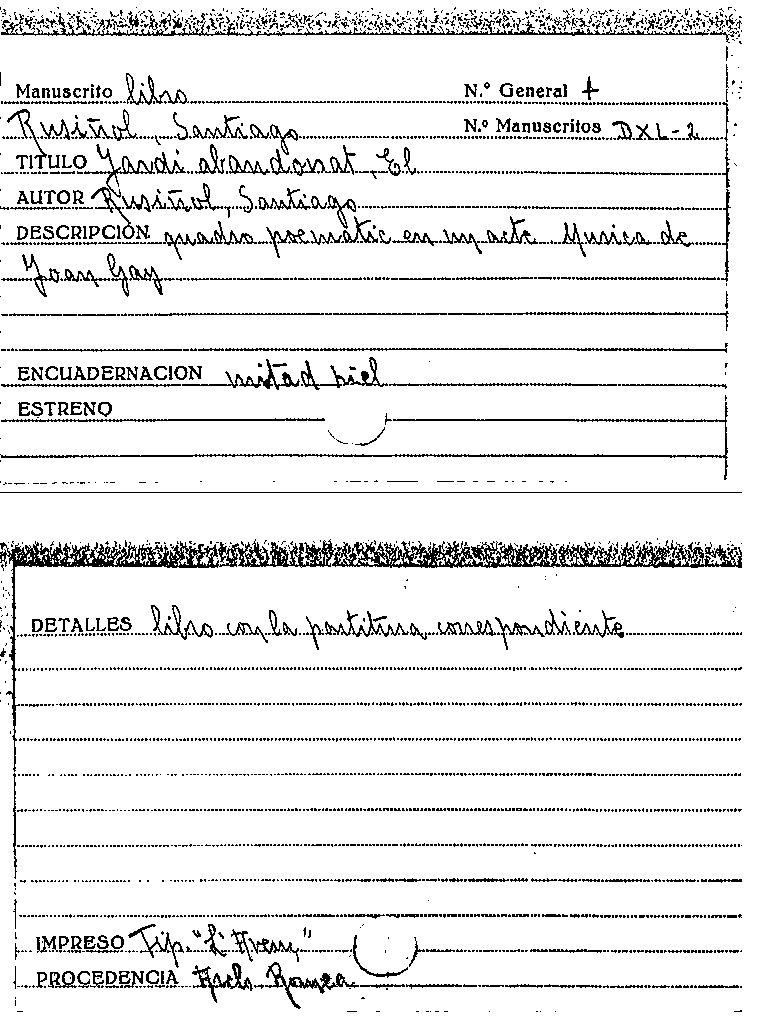 Manuscrito libro N.º General 1
Rusiñol, Santiago N.º Manuscritos DXL-2
TITULO Jardi abandonat, El
AUTOR Rusiñol, Santiago
DESCRIPCIÓN quadro poematic en un acte Musica de
Joan Gay
ENCUADERNACION mitad piel
ESTRENO
DETALLES libro con la partitura correspondiente
IMPRESO Tip. "L'Avenç"
PROCEDENCIA Romea